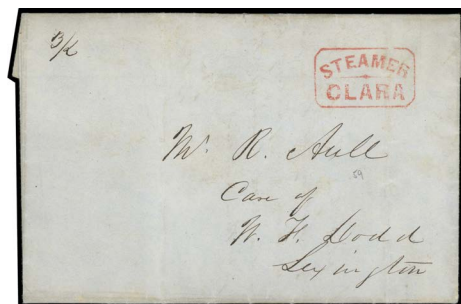 B/L
STEAMER
CLARA
Mr. R. Aull
Care of
W. F. Dodd
Lexington